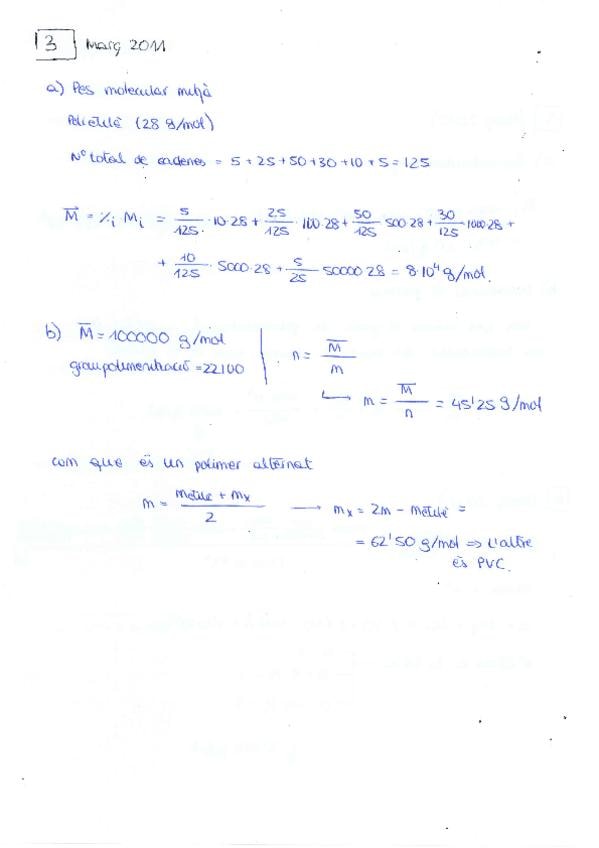 3 Març 2011
a) Pes molecular mitjà
Polietilè (28 g/mol)
Nº total de cadenes = 5 + 25 + 50 + 30 + 10 + 5 = 125
M̅ = χᵢ Mᵢ = 5/125 · 10·28 + 25/125 · 100·28 + 50/125 500·28 + 30/125 1000·28 +
+ 10/125 · 5000·28 + 5/25 50000·28 = 8·10⁴ g/mol.
b) M̅ = 100000 g/mol
n = M̅/m
grau polimerització = 22100
→ m = M̅/n = 45'25 g/mol
com que és un polímer alternat
m = (metilè + mx)/2 → mx = 2m - metilè =
= 62'50 g/mol ⇒ L'altre
és PVC.